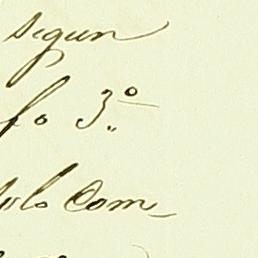 segun
fo 3.º
tulo Com_